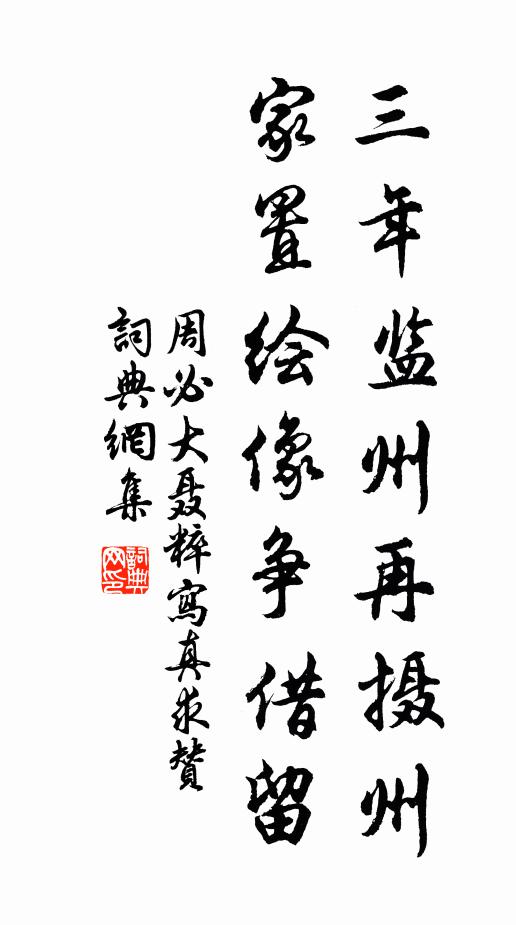 三年监州再摄州
家置绘像争借留
周必大聂粹寫真求贊
詞典網集
詞典网印